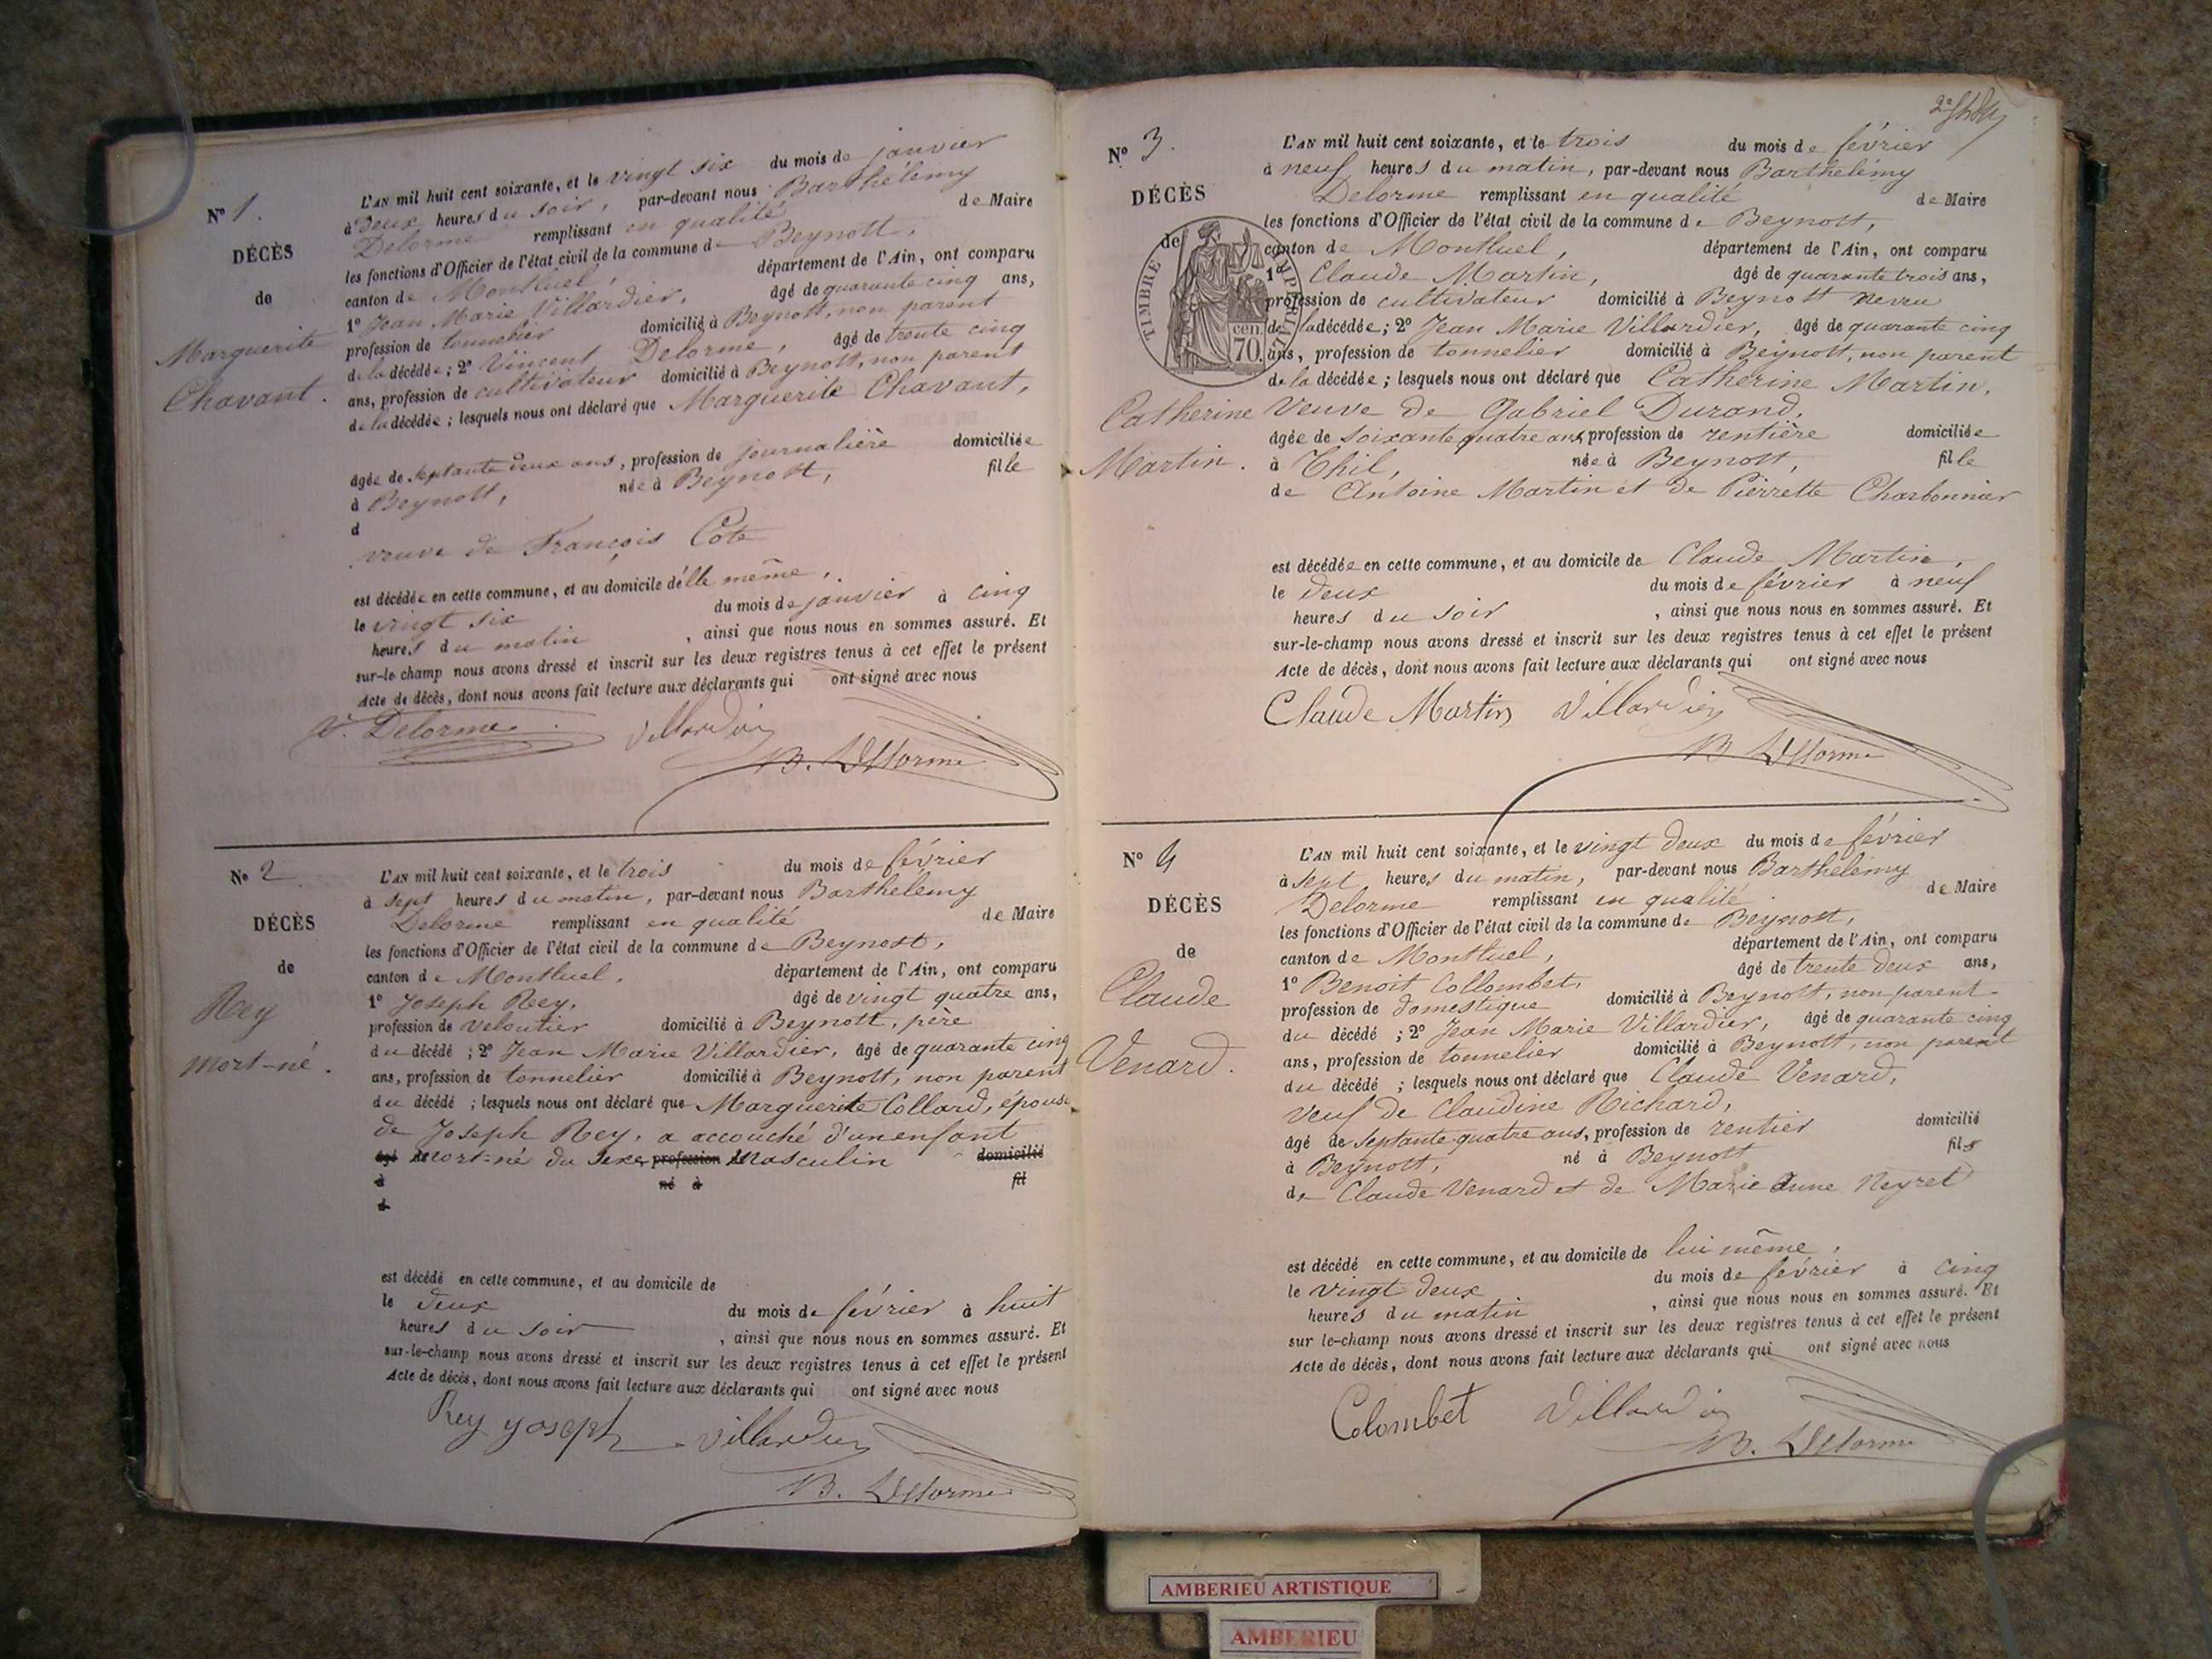 N° 1.
DÉCÈS
de
Marguerite
Chavant.
L'AN mil huit cent soixante, et le vingt six du mois de janvier
à Deux heures du soir, par-devant nous Barthélemy
Delorme remplissant en qualité de Maire
les fonctions d'Officier de l'état civil de la commune de Beynost,
canton de Montluel, département de l'Ain, ont comparu
1° Jean Marie Villardier, âgé de quarante cinq ans,
profession de tonnelier domicilié à Beynost, non parent
de la décédée ; 2° Vincent Delorme, âgé de trente cinq
ans, profession de cultivateur domicilié à Beynost, non parent
de la décédée ; lesquels nous ont déclaré que Marguerite Chavant,
âgée de septante deux ans, profession de journalière domiciliée
à Beynost, née à Beynost, fille
d
veuve de François Cote
est décédée en cette commune, et au domicile d'elle même,
le vingt six du mois de janvier à cinq
heures du matin, ainsi que nous nous en sommes assuré. Et
sur-le-champ nous avons dressé et inscrit sur les deux registres tenus à cet effet le présent
Acte de décès, dont nous avons fait lecture aux déclarants qui ont signé avec nous
V. Delorme Villardier
B. Delorme
N° 2
DÉCÈS
de
Rey
Mort-né.
L'AN mil huit cent soixante, et le trois du mois de février
à sept heures du matin, par-devant nous Barthélemy
Delorme remplissant en qualité de Maire
les fonctions d'Officier de l'état civil de la commune de Beynost,
canton de Montluel, département de l'Ain, ont comparu
1° Joseph Rey, âgé de vingt quatre ans,
profession de veloutier domicilié à Beynost, père
du décédé ; 2° Jean Marie Villardier, âgé de quarante cinq
ans, profession de tonnelier domicilié à Beynost, non parent
du décédé ; lesquels nous ont déclaré que Marguerite Collard, épouse
de Joseph Rey, a accouché d'un enfant
âgé de mort-né du sexe profession masculin domicilié
à né à fil
d
est décédé en cette commune, et au domicile de
le deux du mois de février à huit
heures du soir, ainsi que nous nous en sommes assuré. Et
sur-le-champ nous avons dressé et inscrit sur les deux registres tenus à cet effet le présent
Acte de décès, dont nous avons fait lecture aux déclarants qui ont signé avec nous
Rey yoseph Villardier
B. Delorme
N° 3.
DÉCÈS
de
TIMBRE IMPÉRIAL
70 cen
Catherine
Martin.
L'AN mil huit cent soixante, et le trois du mois de février
à neuf heures du matin, par-devant nous Barthélemy
Delorme remplissant en qualité de Maire
les fonctions d'Officier de l'état civil de la commune de Beynost,
canton de Montluel, département de l'Ain, ont comparu
1° Claude Martin, âgé de quarante trois ans,
profession de cultivateur domicilié à Beynost neveu
de la décédée ; 2° Jean Marie Villardier, âgé de quarante cinq
ans, profession de tonnelier domicilié à Beynost, non parent
de la décédée ; lesquels nous ont déclaré que Catherine Martin,
Veuve de Gabriel Durand,
âgée de soixante quatre ans, profession de rentière domiciliée
à Thil, née à Beynost, fille
de Antoine Martin et de Pierrette Charbonnier
est décédée en cette commune, et au domicile de Claude Martin,
le deux du mois de février à neuf
heures du soir, ainsi que nous nous en sommes assuré. Et
sur-le-champ nous avons dressé et inscrit sur les deux registres tenus à cet effet le présent
Acte de décès, dont nous avons fait lecture aux déclarants qui ont signé avec nous
Claude Martin Villardier
B Delorme
N° 4
DÉCÈS
de
Claude
Venard.
L'AN mil huit cent soixante, et le vingt deux du mois de février
à sept heures du matin, par-devant nous Barthélemy
Delorme remplissant en qualité de Maire
les fonctions d'Officier de l'état civil de la commune de Beynost,
canton de Montluel, département de l'Ain, ont comparu
1° Benoit Collombet, âgé de trente deux ans,
profession de domestique domicilié à Beynost, non parent
du décédé ; 2° Jean Marie Villardier, âgé de quarante cinq
ans, profession de tonnelier domicilié à Beynost, non parent
du décédé ; lesquels nous ont déclaré que Claude Venard,
Veuf de Claudine Richard,
âgé de septante quatre ans, profession de rentier domicilié
à Beynost, né à Beynost fils
de Claude Venard et de Marie Anne Neyret
est décédé en cette commune, et au domicile de lui même,
le vingt deux du mois de février à cinq
heures du matin, ainsi que nous nous en sommes assuré. Et
sur le-champ nous avons dressé et inscrit sur les deux registres tenus à cet effet le présent
Acte de décès, dont nous avons fait lecture aux déclarants qui ont signé avec nous
Colombet Villardier
B. Delorme
AMBERIEU ARTISTIQUE
AMBERIEU